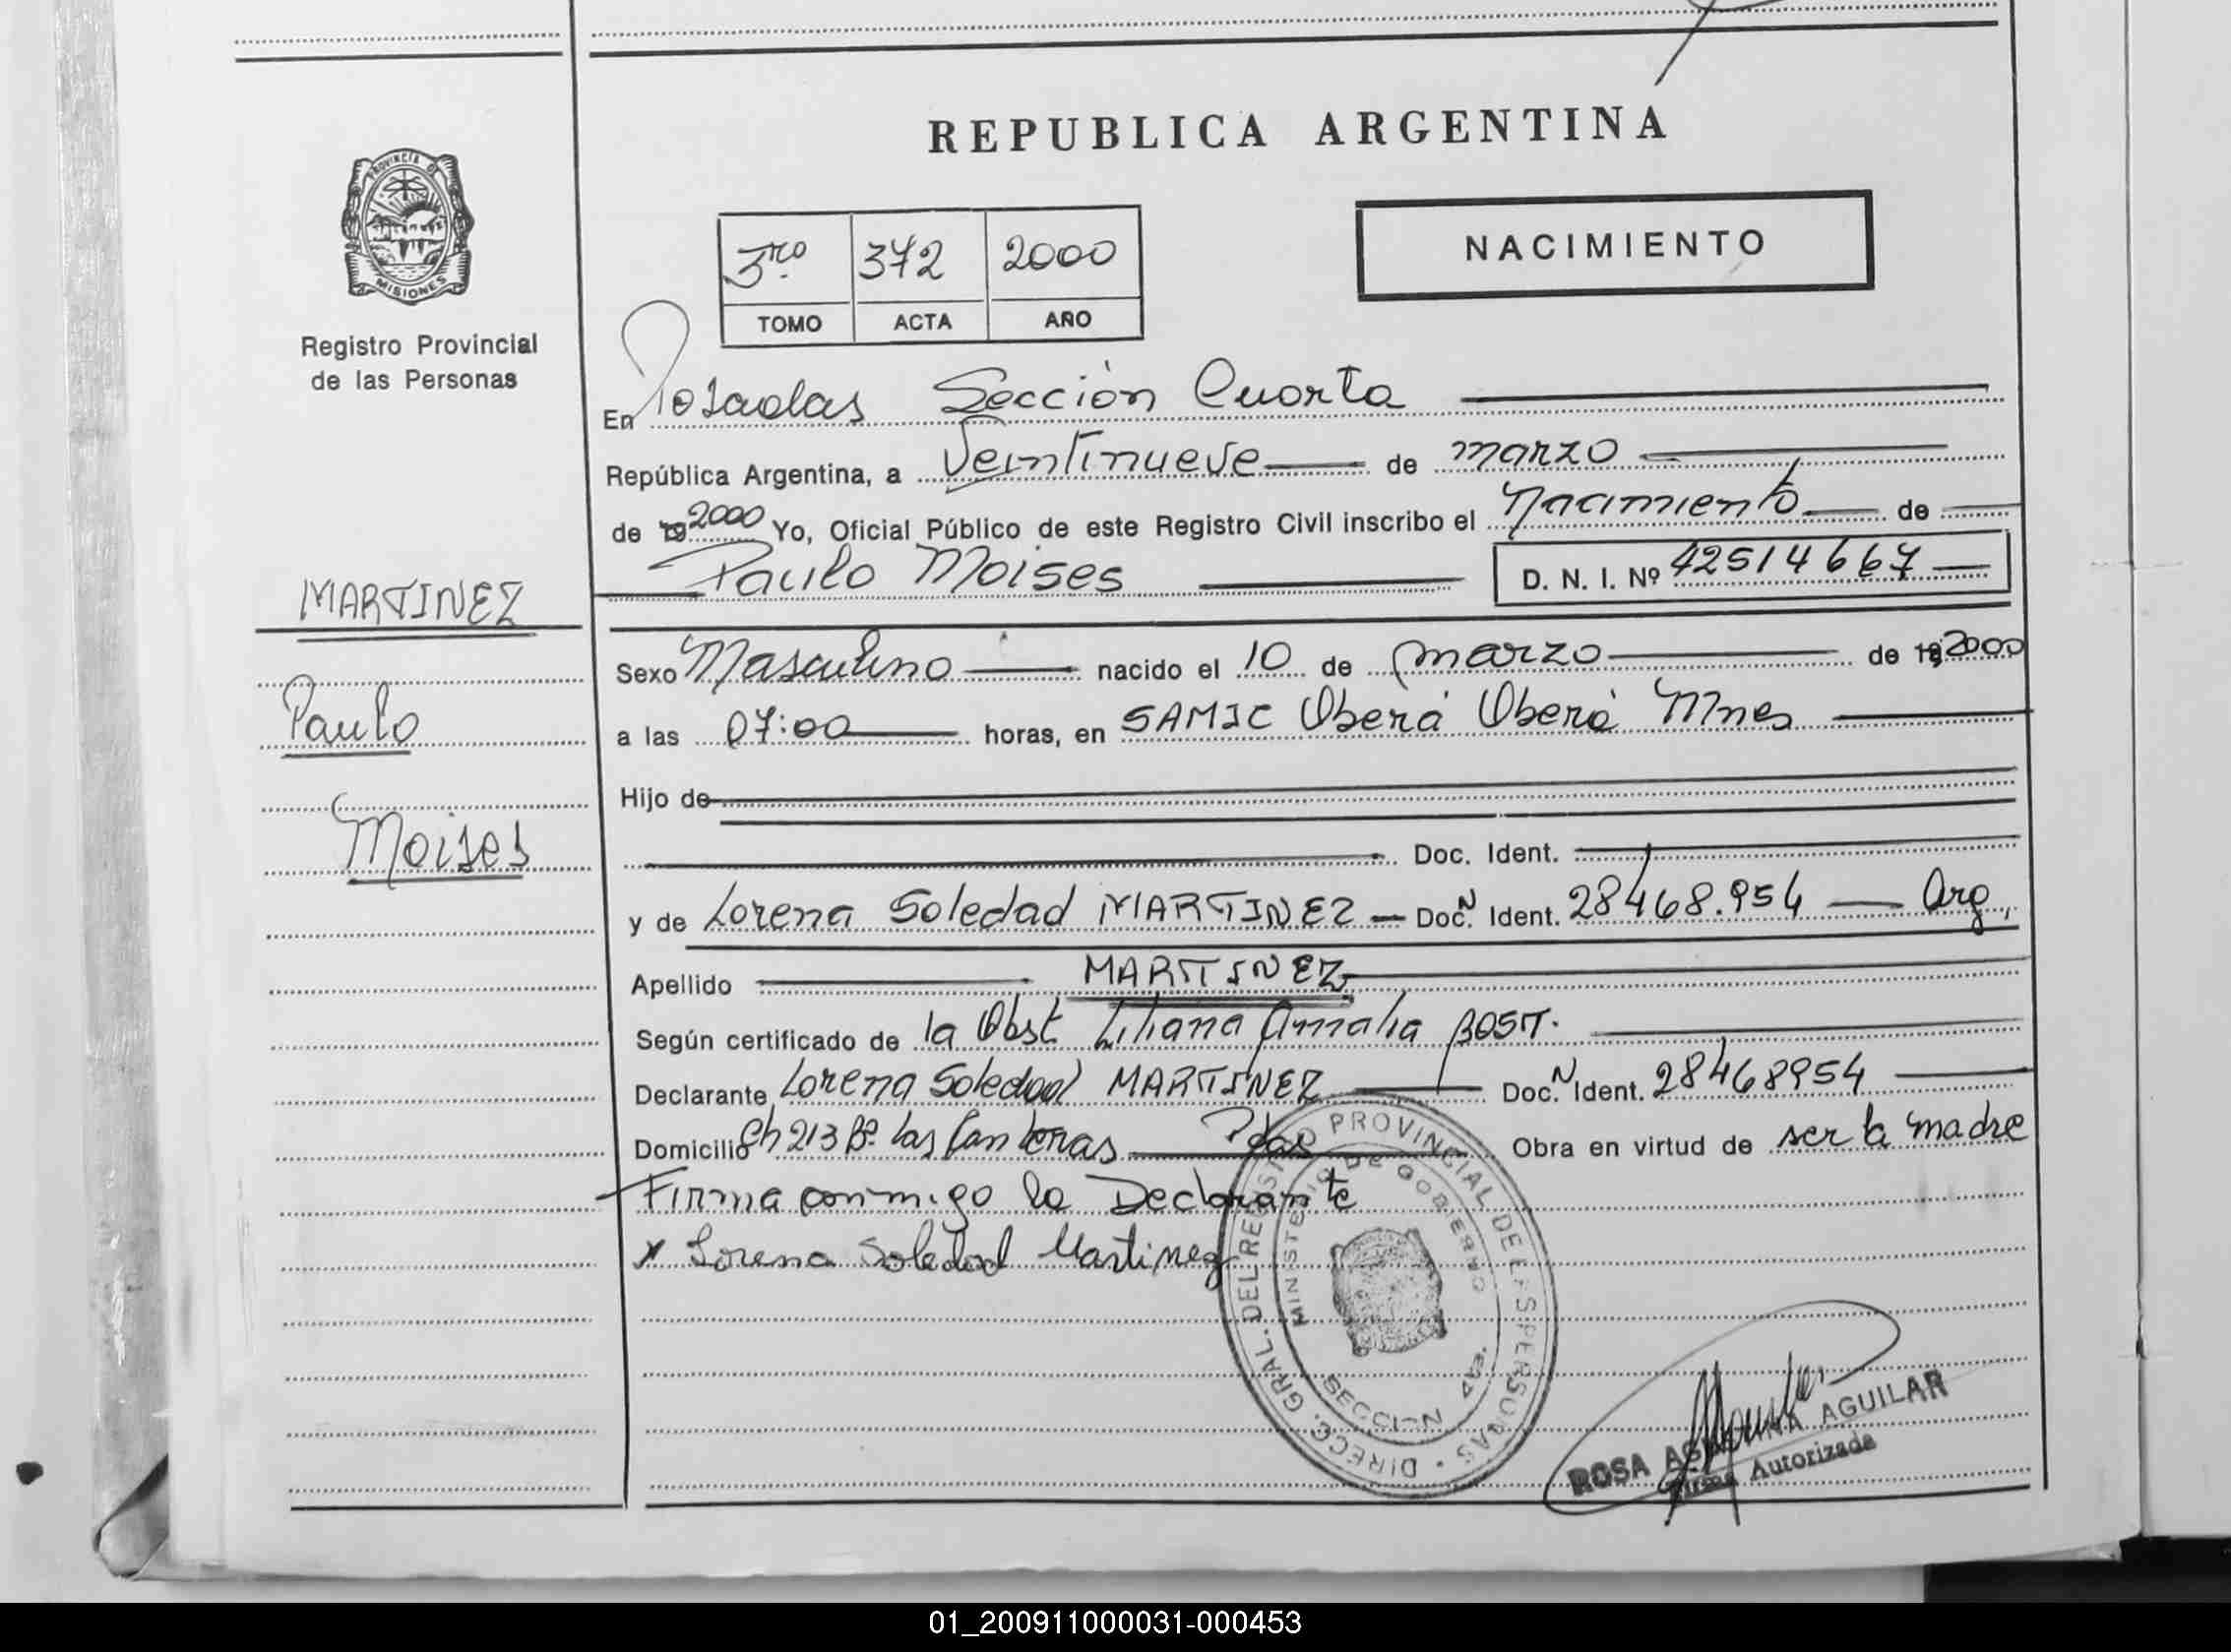 REPUBLICA ARGENTINA
PROVINCIA DE
MISIONES
Registro Provincial
de las Personas
3ro. 372 2000
TOMO ACTA AÑO
NACIMIENTO
En Posadas Sección Cuarta
República Argentina, a Veintinueve de marzo
de 19 2000 Yo, Oficial Público de este Registro Civil inscribo el Nacimiento de
Paulo Moises D. N. I. Nº 42514667
MARTINEZ
Paulo
Moises
Sexo Masculino nacido el 10 de marzo de 19 2000
a las 07:00 horas, en SAMIC Oberá Oberá Mnes
Hijo de
Doc. Ident.
y de Lorena Soledad MARTINEZ Doc. N Ident. 28468.954 Arg.
Apellido MARTINEZ
Según certificado de la Obst Liliana Amalia
Declarante Lorena Soledad MARTINEZ Doc. N Ident. 28468954
Domicilio Ch 213 Bº Las Canteras Pdas Obra en virtud de ser la madre
Firma conmigo la Declarante
x Lorena Soledad Martinez
DIRECC. GRAL. DEL REGISTRO PROVINCIAL DE LAS PERSONAS
MINISTERIO DE GOBIERNO
SECCION 4ta.
ROSA AGUILAR
Firma Autorizada
01_200911000031-000453